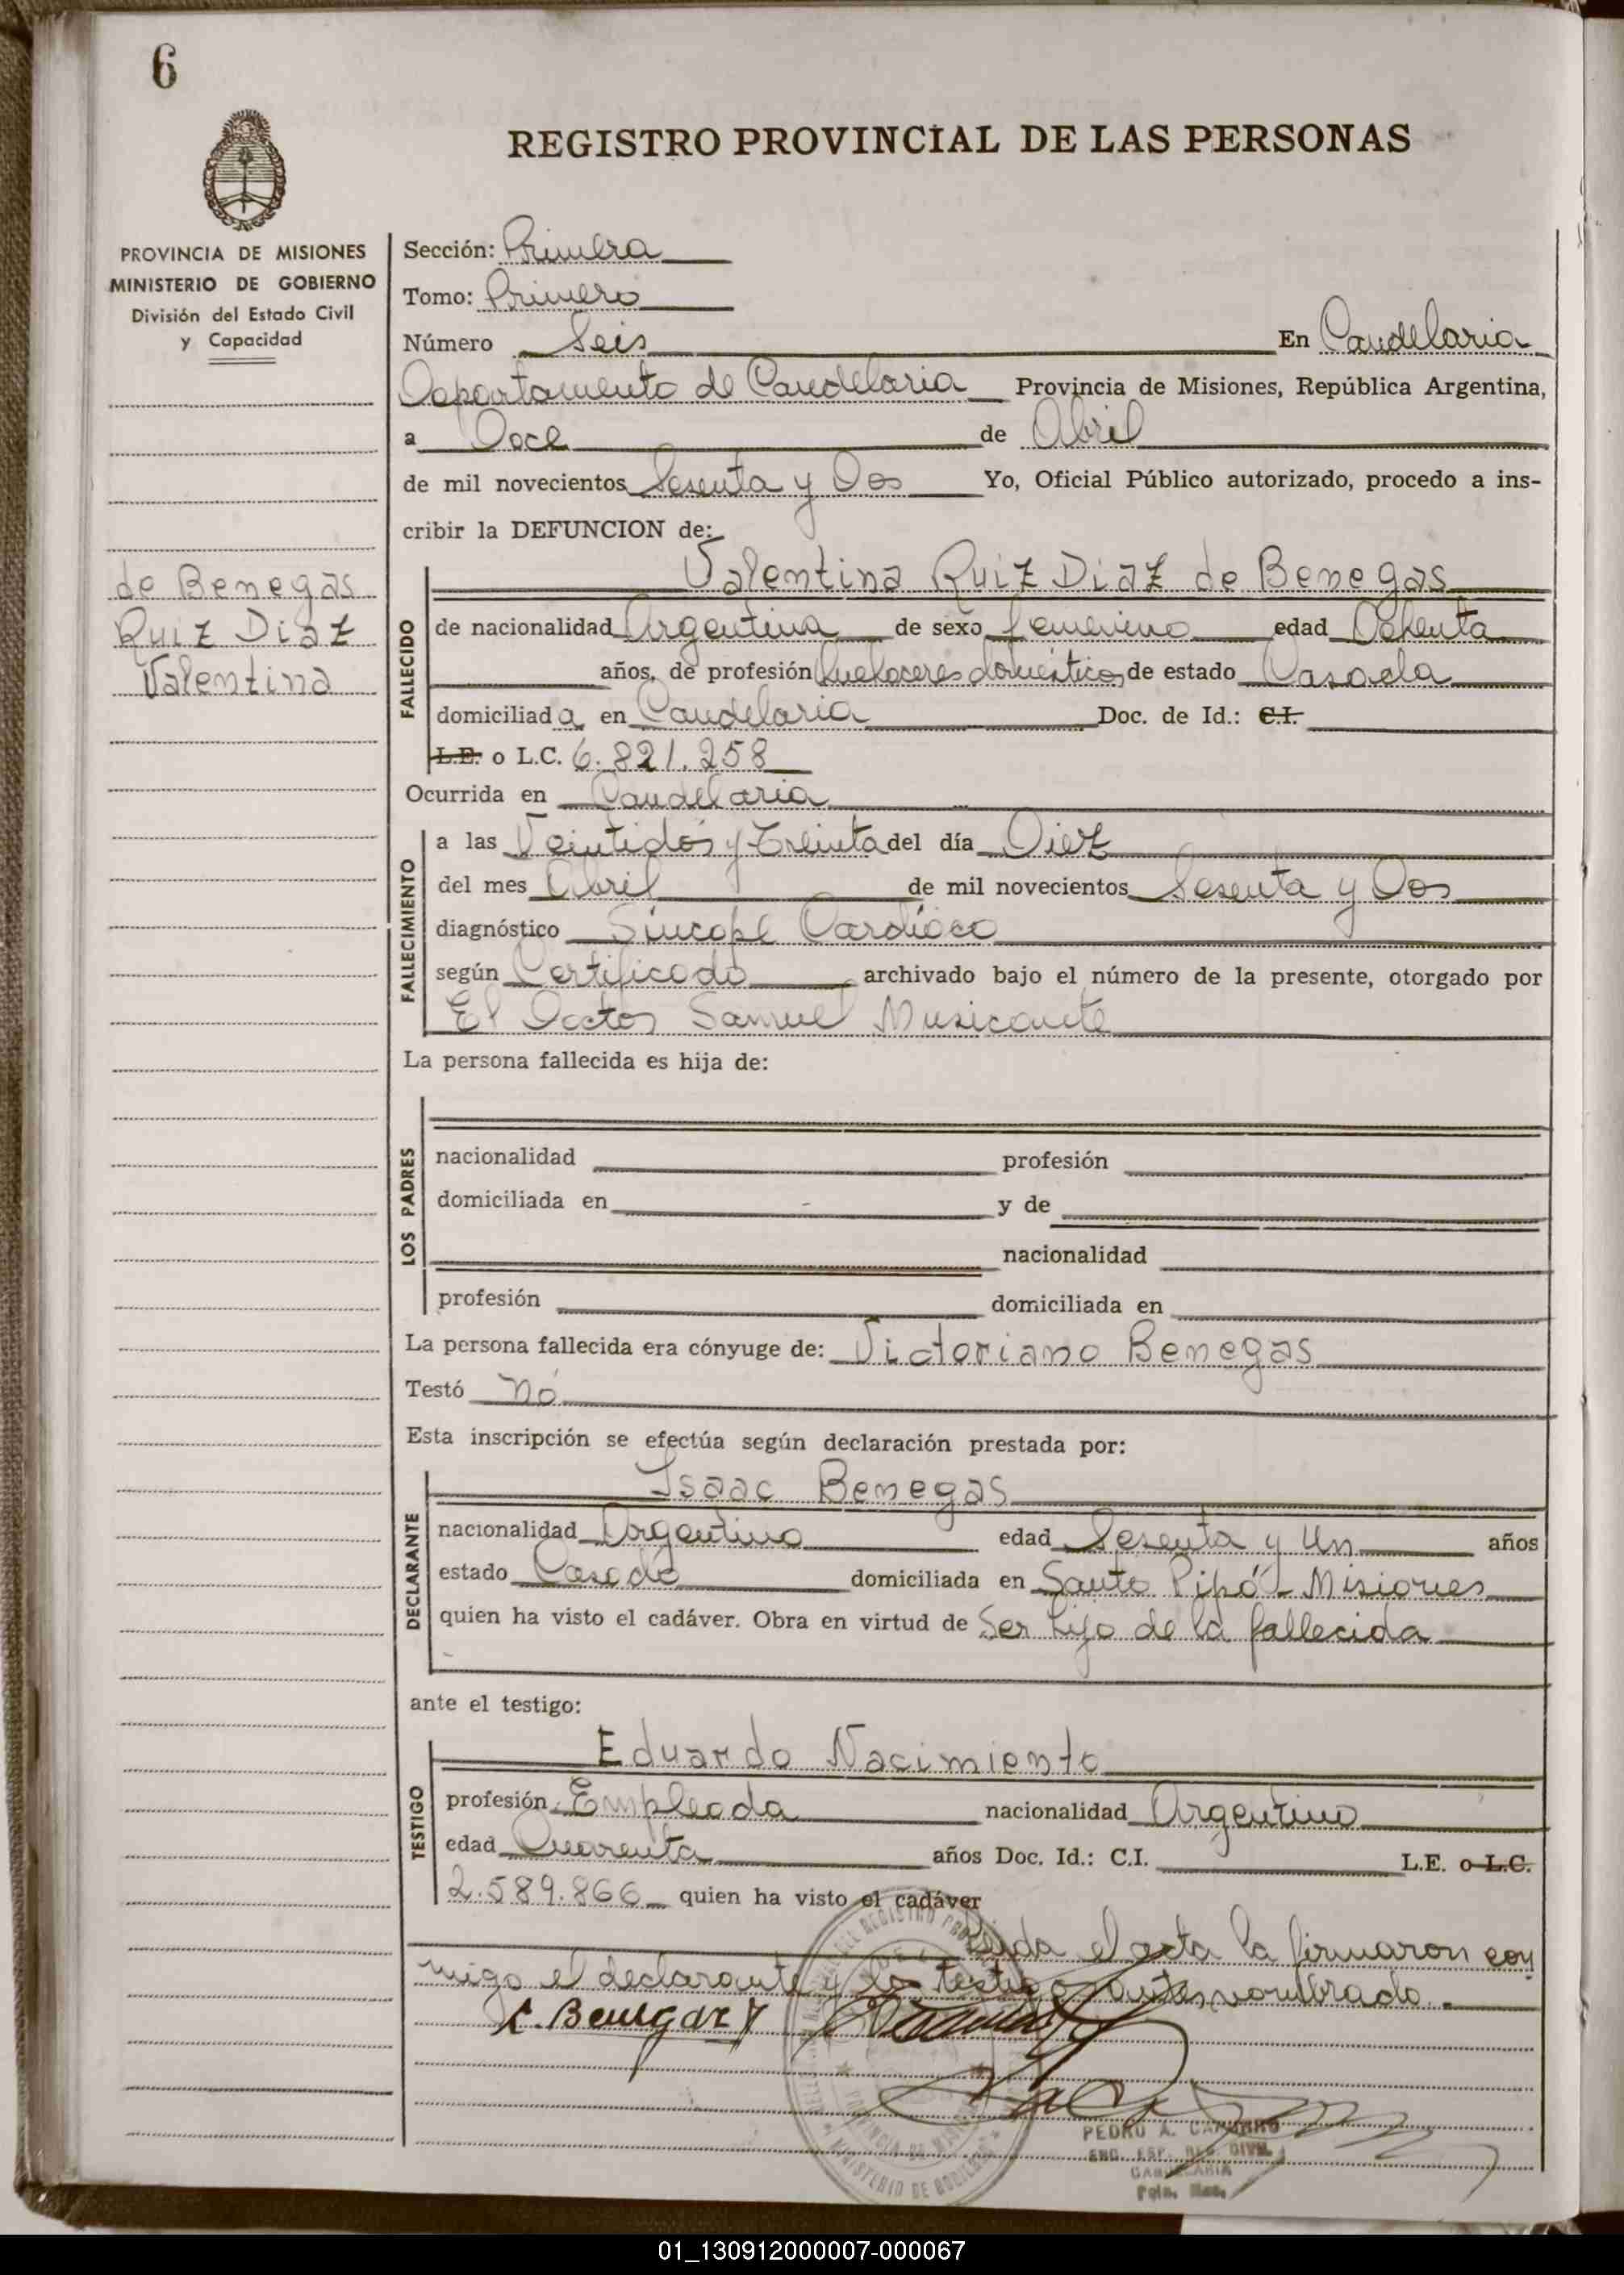 6
REGISTRO PROVINCIAL DE LAS PERSONAS
PROVINCIA DE MISIONES
MINISTERIO DE GOBIERNO
División del Estado Civil
y Capacidad
de Benegas
Ruiz Diaz
Valentina
Sección: Primera
Tomo: Primero
Número Seis En Candelaria
Departamento de Candelaria Provincia de Misiones, República Argentina,
a Doce de Abril
de mil novecientos Sesenta y Dos Yo, Oficial Público autorizado, procedo a ins-
cribir la DEFUNCION de:
Valentina Ruiz Diaz de Benegas
FALLECIDO
de nacionalidad Argentina de sexo femenino edad Ochenta
años, de profesión Quehaceres domésticos de estado Casada
domiciliada en Candelaria Doc. de Id.: C.I.
L.E. o L.C. 6.821.258
Ocurrida en Candelaria
FALLECIMIENTO
a las Veintidós y Treinta del día Diez
del mes Abril de mil novecientos Sesenta y Dos
diagnóstico Síncope Cardíaco
según Certificado archivado bajo el número de la presente, otorgado por
El Doctor Samuel Musicante
La persona fallecida es hija de:
LOS PADRES
nacionalidad profesión
domiciliada en y de
nacionalidad
profesión domiciliada en
La persona fallecida era cónyuge de: Victoriano Benegas
Testó No
Esta inscripción se efectúa según declaración prestada por:
Isaac Benegas
DECLARANTE
nacionalidad Argentino edad Sesenta y Un años
estado Casado domiciliada en Santo Pipó - Misiones
quien ha visto el cadáver. Obra en virtud de Ser hijo de la fallecida
ante el testigo:
Eduardo Nacimiento
TESTIGO
profesión Empleado nacionalidad Argentino
edad Cuarenta años Doc. Id.: C.I. L.E. o L.C.
2.589.866 quien ha visto el cadáver
Leída el acta la firmaron con
migo el declarante y los testigos antes nombrado.
PEDRO A.
ENC. ESP. REG. CIVIL
CANDELARIA
MINISTERIO DE GOBIERNO
01_130912000007-000067